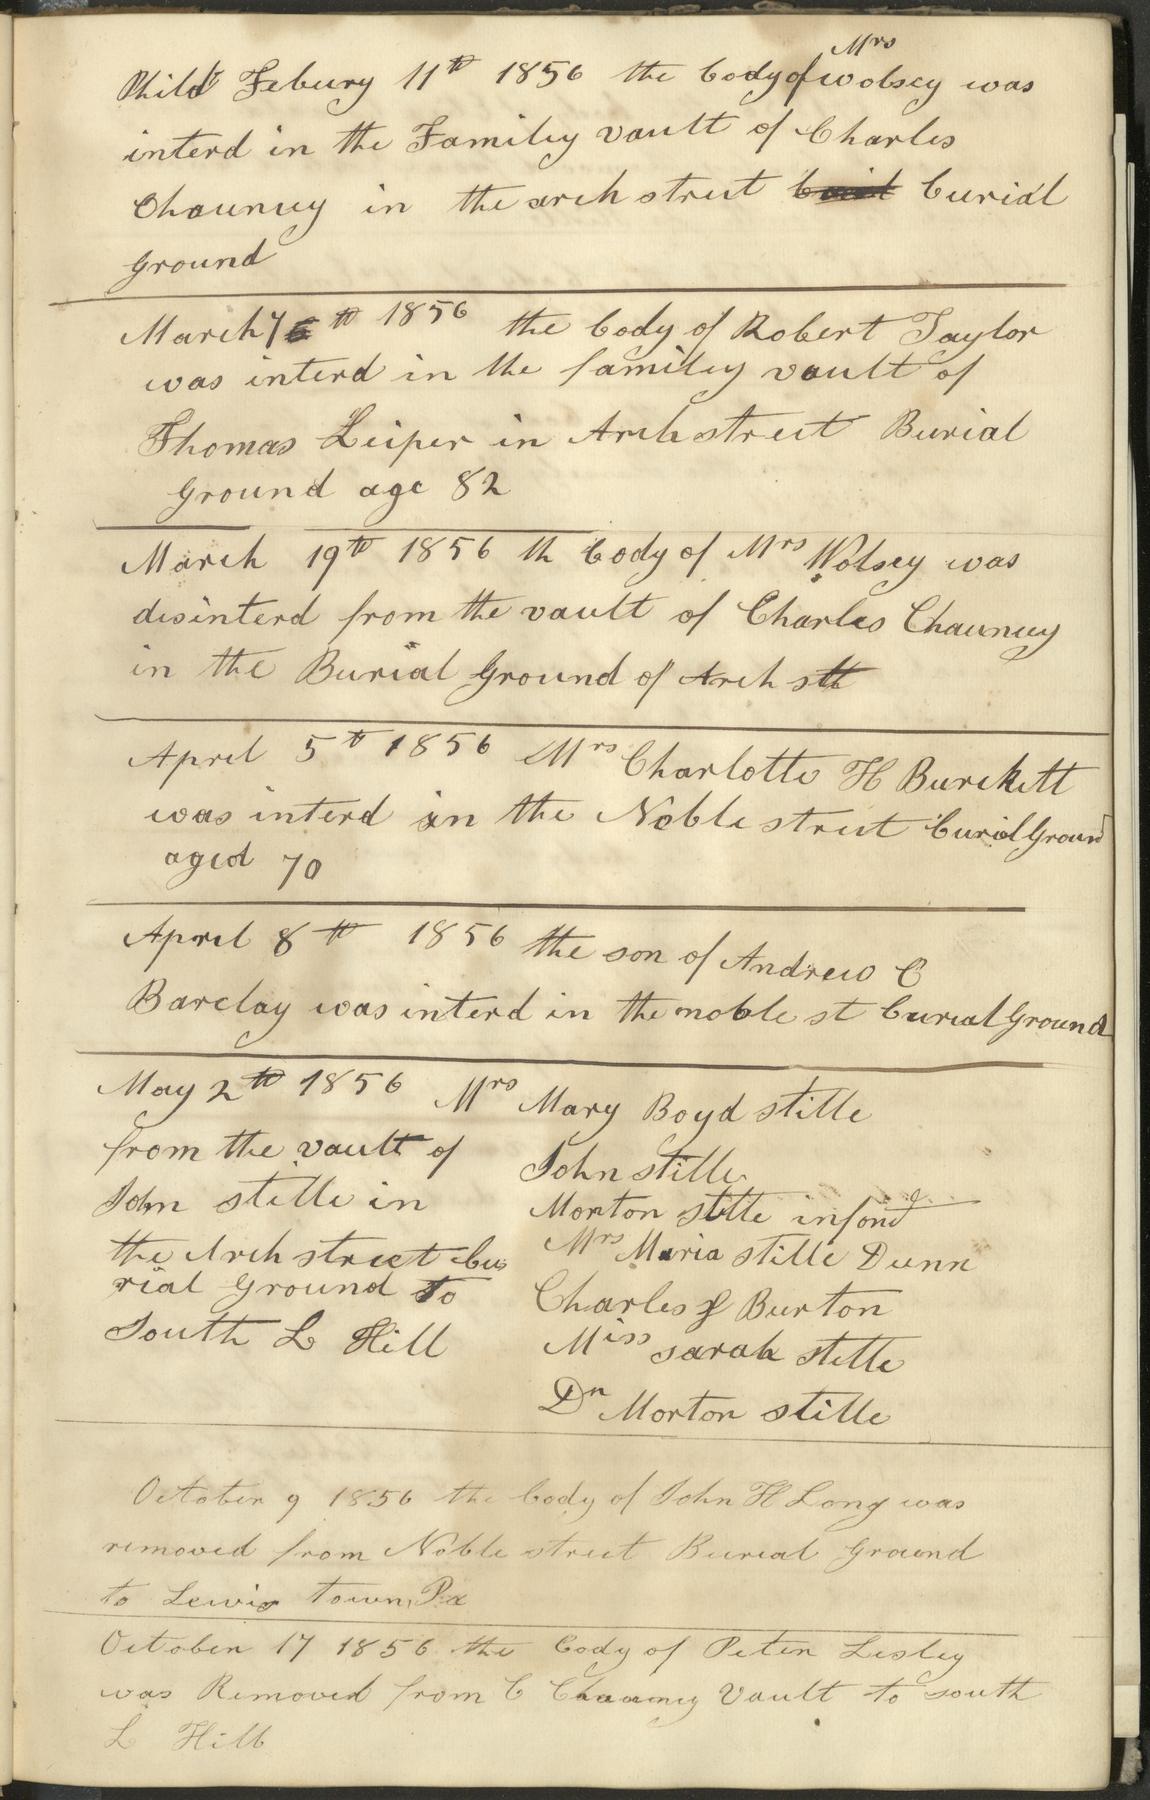 Phild Febury 11th 1856 the body of Mrs Wolsey was
interd in the Familey vault of Charles
Chauncey in the arch street burial
Ground
March 7th 1856 the body of Robert Taylor
was interd in the familey vault of
Thomas Leiper in Arch street Burial
Ground age 82
March 19th 1856 th body of Mrs Wolsey was
disinterd from the vault of Charles Chauncey
in the Burial Ground of Arch stt
April 5th 1856 Mrs Charlotte H Burckett
was interd in the Noble street burial Ground
aged 70
April 8th 1856 the son of Andrew C
Barclay was interd in the noble st burial Ground
May 2th 1856 Mrs Mary Boyd stille
from the vault of
John stille in
the Arch street bu
rial Ground to
South L Hill
John stille
Morton stille infond
Mrs Maria stille Dunn
Charles Burton
Miss sarah stille
Dr Morton stille
October 9 1856 the body of John H Long was
removed from Noble street Burial Ground
to Lewis town, Pa
October 17 1856 the body of Peter Lesley
was Removed from C Chauncey Vault to south
L Hill